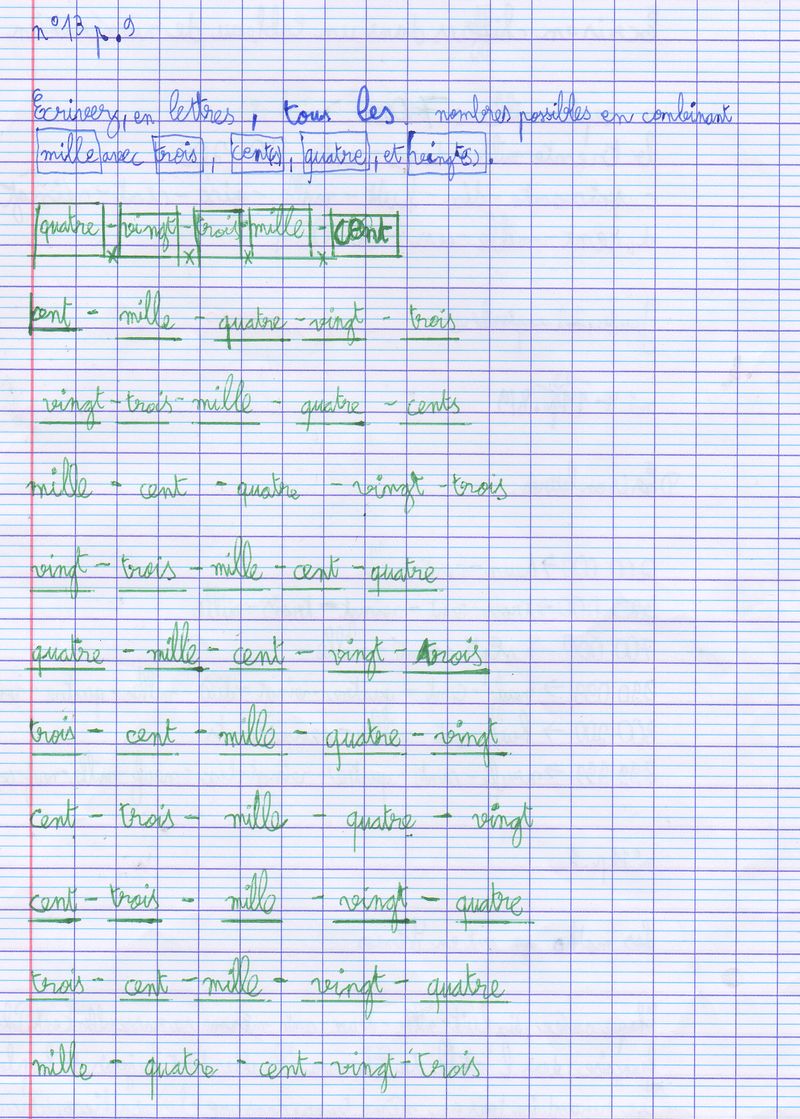 n°13 p.9
Ecrivez, en lettres, tous les nombres possibles en combinant
mille avec trois, cent(s), quatre, et vingt(s).
quatre - vingt - trois - mille - cent
cent - mille - quatre - vingt - trois
vingt - trois - mille - quatre - cents
mille - cent - quatre - vingt - trois
vingt - trois - mille - cent - quatre
quatre - mille - cent - vingt - trois
trois - cent - mille - quatre - vingt
cent - trois - mille - quatre - vingt
cent - trois - mille - vingt - quatre
trois - cent - mille - vingt - quatre
mille - quatre - cent - vingt - trois